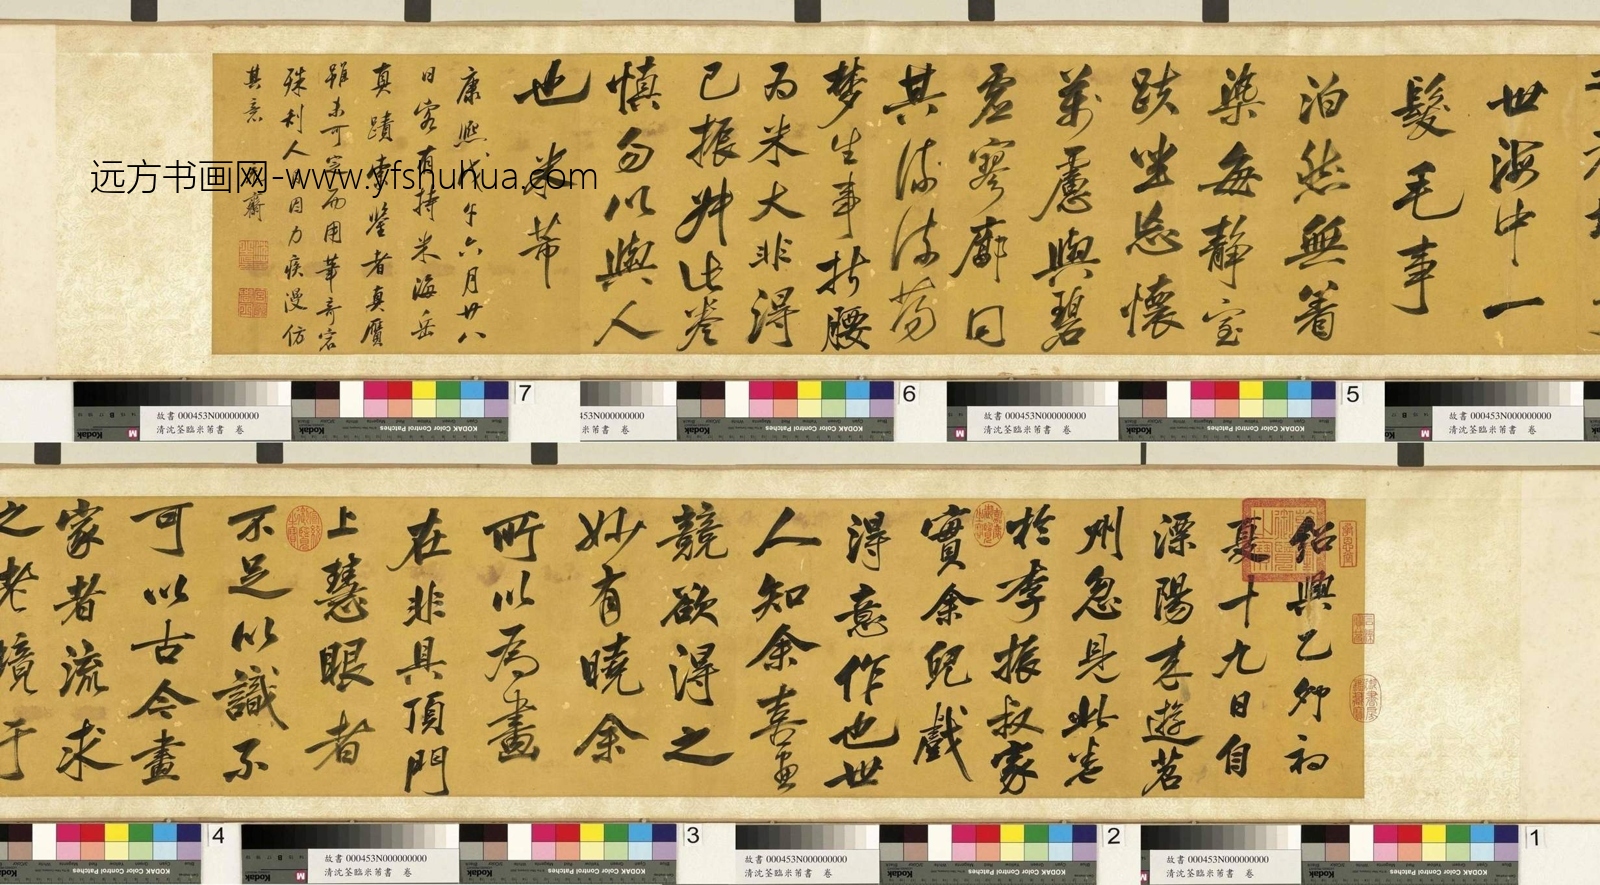 紹興乙卯初
夏十九日自
溧陽來遊苕
州忽見此卷
於李振叔家
實余兒戲
得意作也世
人知余喜畫
競欲得之
妙有曉余
所以為畫
在非具頂門
上慧眼者
不足以識不
可以古今畫
家者流求
之老境于
世海中一
髮毛事
泊然無著
染每靜室
趺坐忘懷
萬慮與碧
虛寥廓同
其流流蕩
夢生事折腰
為米大非得
已振叔此卷
慎勿以與人
也 米芾
康熙戊午六月廿八
日客有持米海岳
真蹟索鑒者真贗
雖未可定而用筆奇宕
殊刮人目力疾漫仿
其意
远方书画网-www.yfshuhua.com
7
6
5
故書 000453N000000000
清沈荃臨米芾書 卷
故書 000453N000000000
清沈荃臨米芾書 卷
故書 000453N000000000
清沈荃臨米芾書 卷
KODAK Color Control Patches
Kodak
4
3
2
1
故書 000453N000000000
清沈荃臨米芾書 卷
故書 000453N000000000
清沈荃臨米芾書 卷
故書 000453N000000000
清沈荃臨米芾書 卷
KODAK Color Control Patches
Kodak